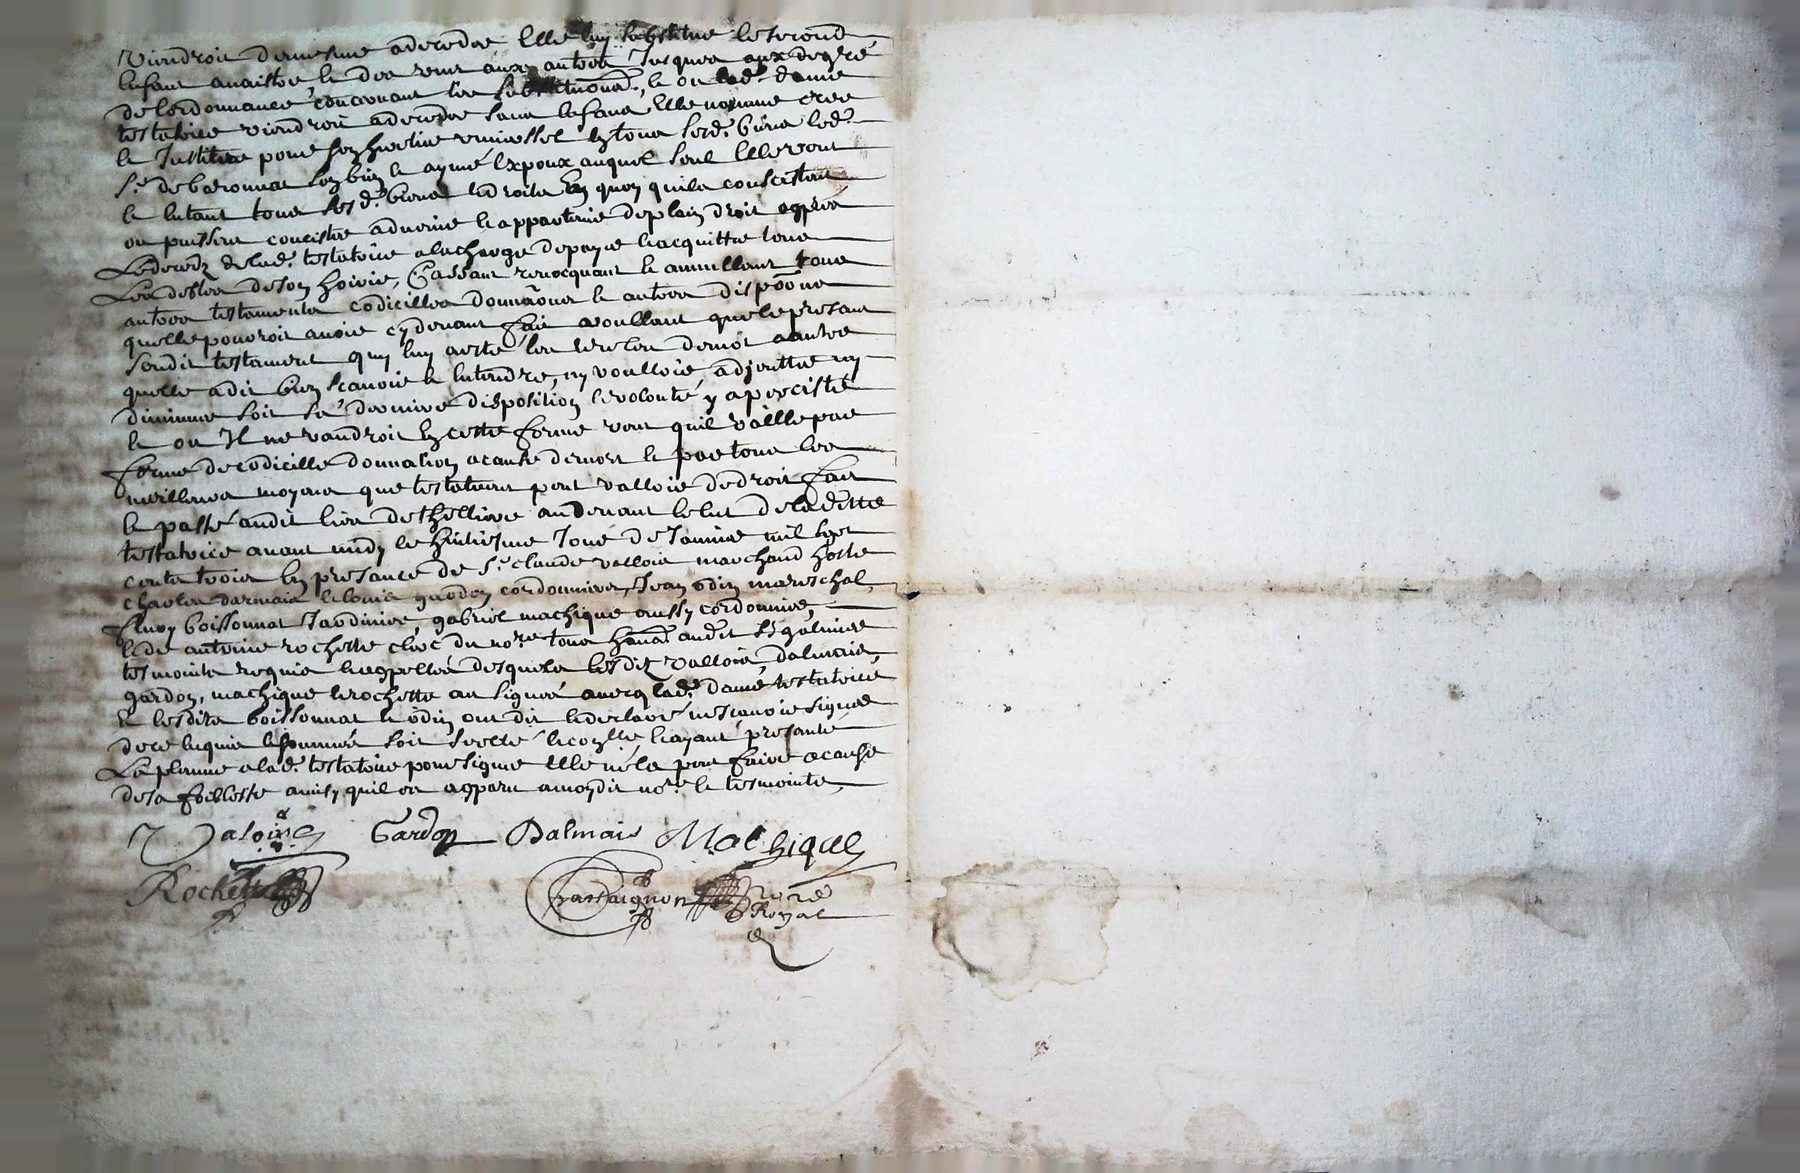 viendroit de mesme a deceder elle luy substitue le second
enfant a naistre et des uns aux autres jusques aux degré
de lordonnance concernant les substituons, et ou lad. dame
testatrice viendroit a deceder sans enfans elle nomme cree
et institue pour son heritier universel en tous sesd. biens led.
Sr. de baronnat son bien et aymé expoux auquel seul elle veut
et entant tous sesd. biens et droits en quoy quils consistent
ou puissent concister advenir et appartenir de plain droit appres
le deceds de lad. testatrice a la charge de payer et acquitter tous
les debtes de son hoirie, Cassant revocquant et annullant tous
autres testaments codicilles donnaõns et autres dispõons
quelle pouvoit avoir cy devant fait voullant que le presant
sondit testament quy luy a esté leu et releu de mot a autre
quelle a dit bien scavoir et entendre, ny voulloir adjoutter ny
diminuer soit sa derniere disposition et volonté y a percisté
et ou Il ne vaudroit en cette forme veut quil vallle par
forme de codicille donnation a cause de mort et par tous les
meilleurs moyens que testament peut valloir de droit fait
et passé audit lieu de thelliere au devant le lict de ladette
testatrice avant midy le huitiesme jour de janvier mil sept
cents trois en presance de Sr. claude valloix marchand hoste
charles darmais et louis gardon cordonniers, Jean odin mareschal,
fleury boissonnat jardinier, gabriel machique aussy cordonnier,
et de antoine rochette clerc du nore. tous hãnts. audit St galmier
tesmoints requis et appellés desquels lesdits valloix, dalmais,
gardon, machique et rochette on signés avecq lad. dame testatrice
et lesdits boissonnat et odin ont dit et declaré ne scavoir signer
de ce enquis et sommés soit scellé et controllé et ayant presanté
la plume a lad. testatrice pour signer elle ne la peu faire a cause
de sa foiblesse ainsy quil es apparu a moydit nore. et tesmoints
Valoix Gardon Dalmais Machique
Rochette Chassaignon nore
Royal